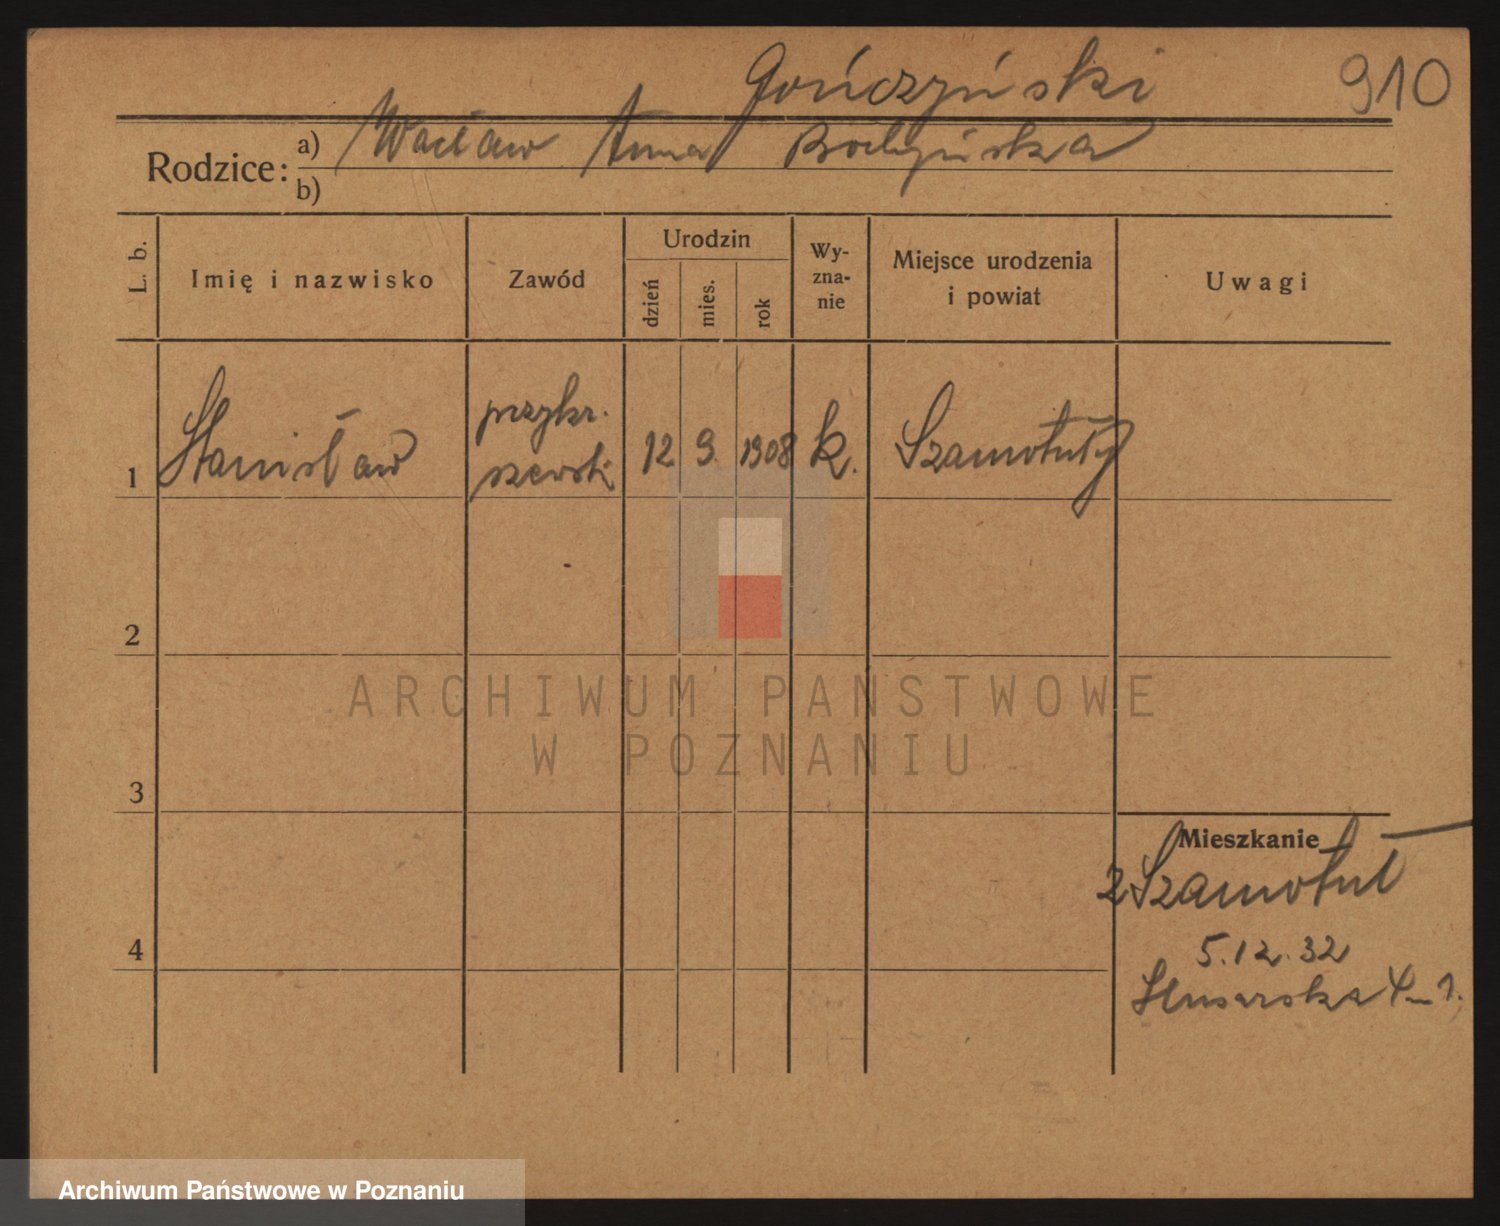 Gończyński 910
Rodzice: a) Wacław Anna
b)
L. b.
Imię i nazwisko
Zawód
Urodzin
dzień
mies.
rok
Wy-
zna-
nie
Miejsce urodzenia
i powiat
Uwagi
1 Stanisław przykr. 12 9. 1908 k. Szamotuły
szewski
2
3
4
Mieszkanie
z Szamotuł
5.12.32
4 1.
ARCHIWUM PAŃSTWOWE
W POZNANIU
Archiwum Państwowe w Poznaniu